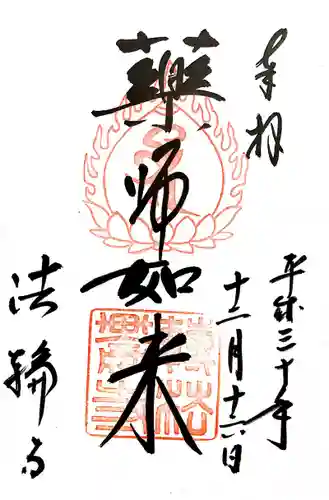 奉拝
平成三十年
十二月十六日
薬師如来
法輪寺